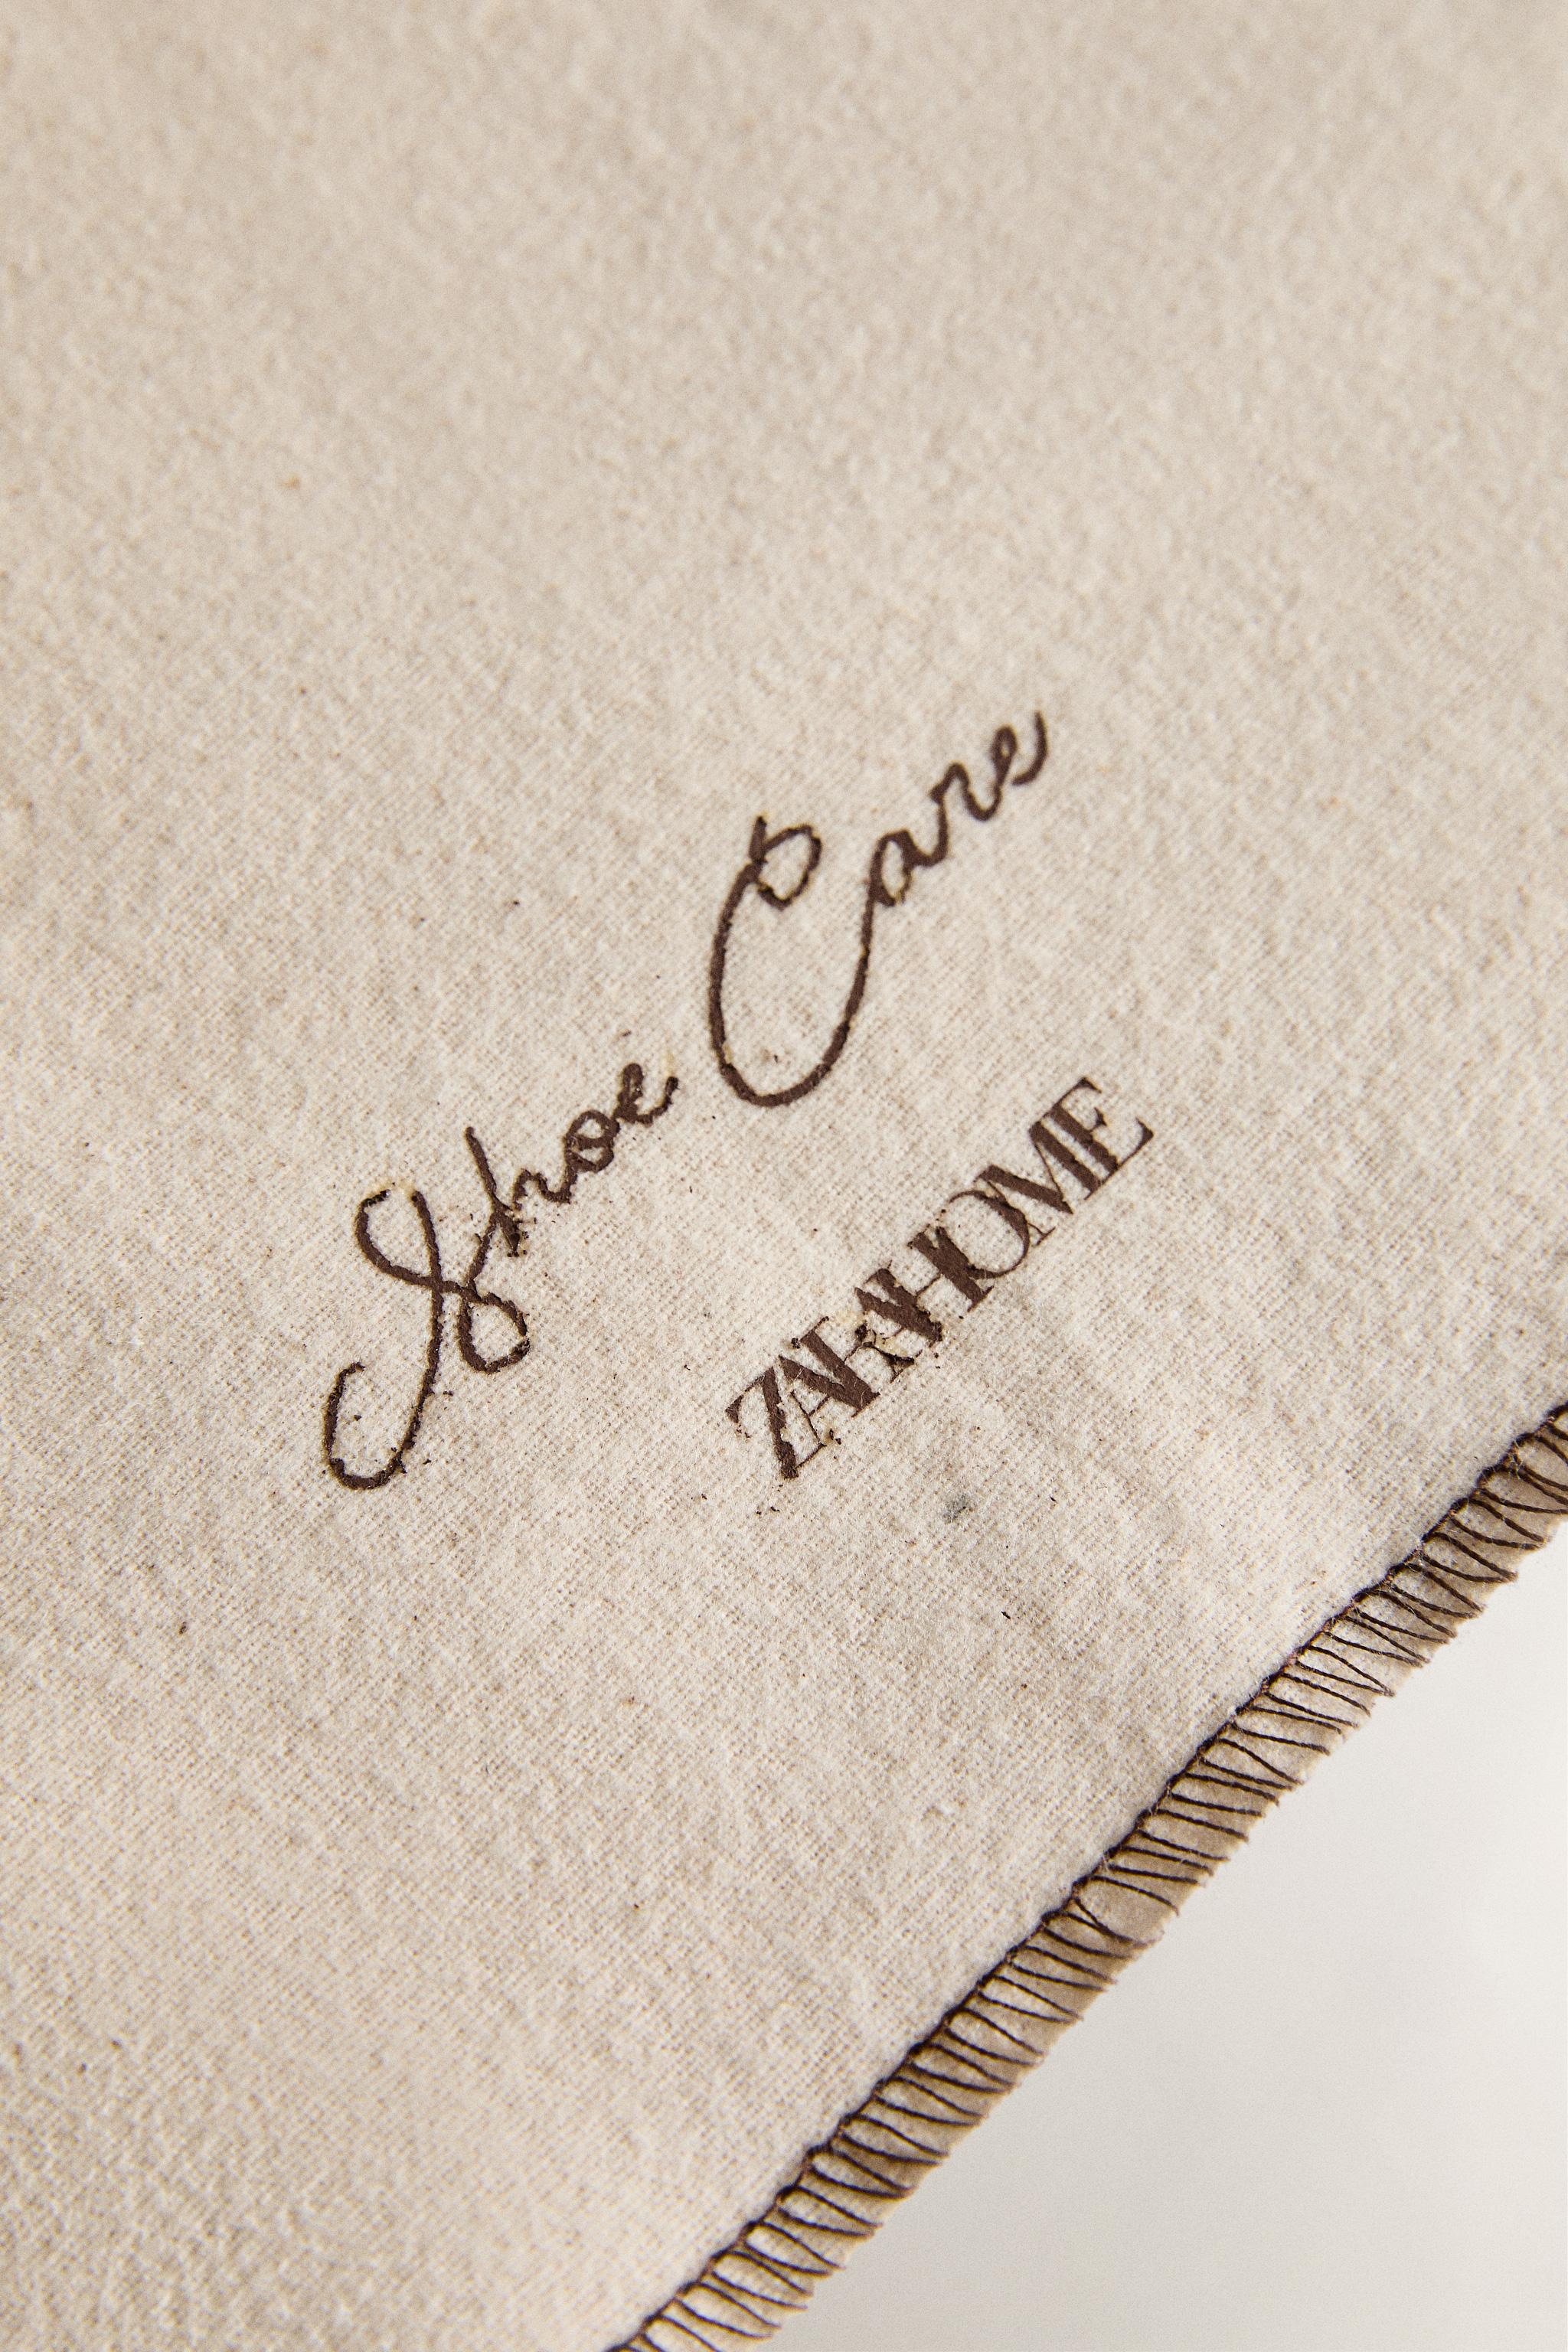 Shoe Care
ZARAHOME